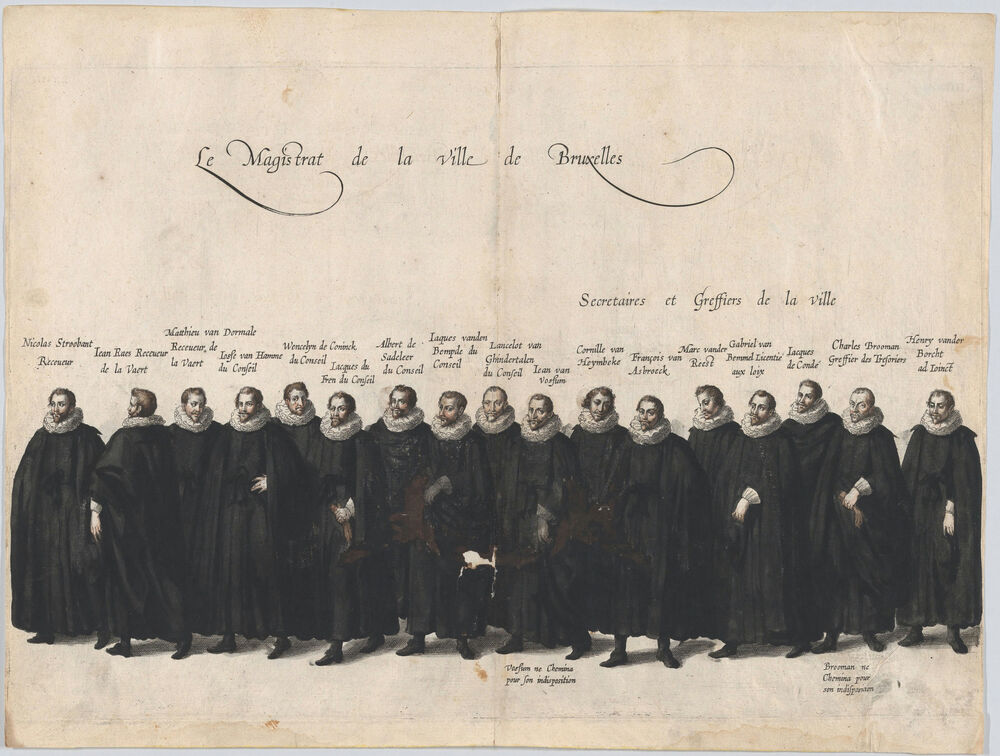 Le Magistrat de la ville de Bruxelles
Secretaires et Greffiers de la ville
Nicolas Stroobant
Receueur
Iean Raes Receueur
de la Vaert
Matthieu van Dormale
Receueur de
la Vaert
Iosse van Hamme
du Conseil
Wencelyn de Coninck
du Conseil
Iacques du
Fren du Conseil
Albert de
Sadeleer
du Conseil
Iaques vanden
Bempde du
Conseil
Lancelot van
Ghindertalen
du Conseil
Iean van
Voessum
Cornille van
Heymbeke
François van
Asbroeck
Marc vander
Reest
Gabriel van
Bemmel Licentie
aux loix
Iacques
de Condé
Charles Brooman
Greffier des Tresoriers
Henry vander
Borcht
ad Ioinct
Voessum ne Chemina
pour son indisposition
Brooman ne
Chemina pour
son indisposition